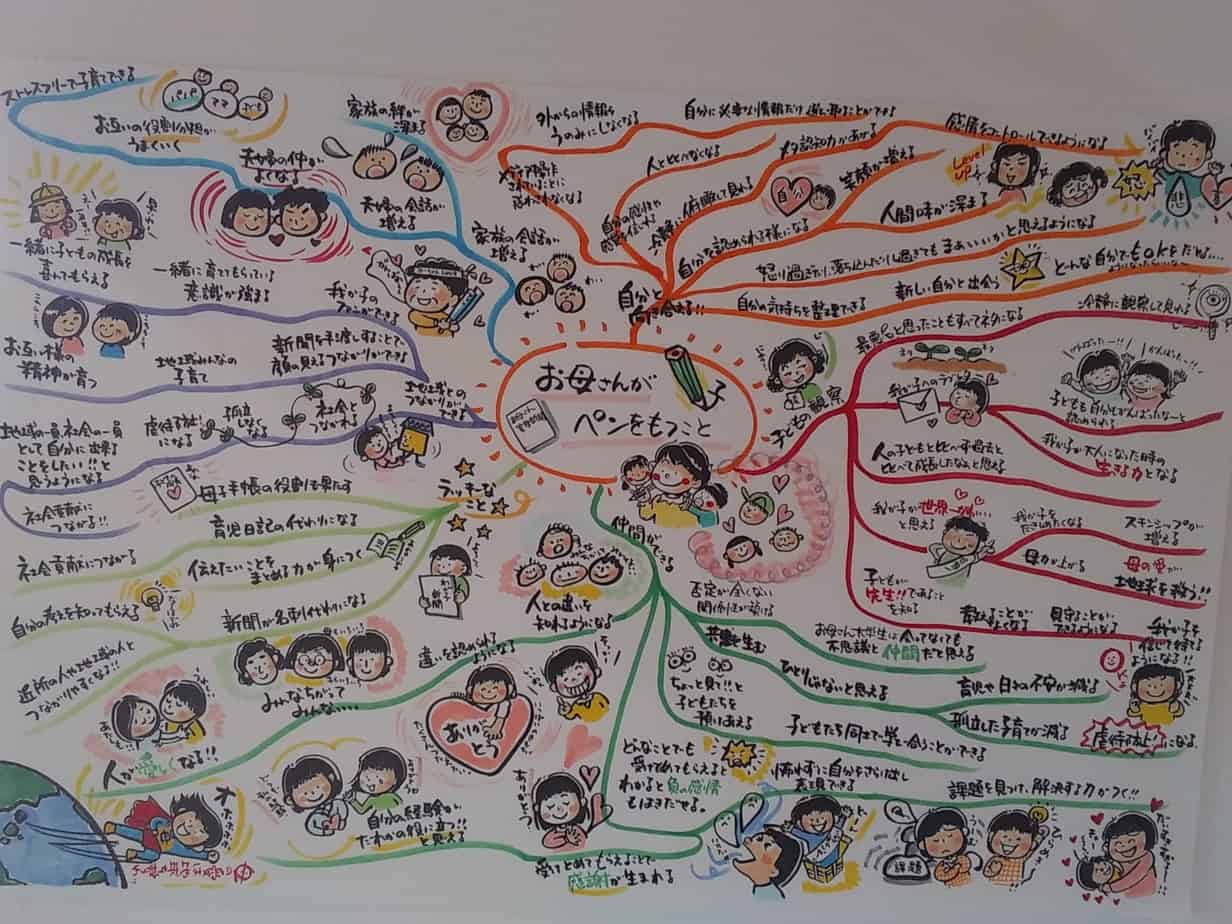 ストレスフリーで子育てできる
パパ
ママ
子ども
お互いの役割分担が
うまくいく
夫婦の仲が
よくなる
家族の絆が
深まる
夫婦の会話が
増える
家族の会話が
増える
外からの情報を
うのみにしなくなる
自分に必要な情報だけ選び取ることができる
人とくらべなくなる
メタ認知力があがる
冷静に俯瞰して見れる
自分
笑顔が増える
感情をコントロールできるようになる
Level
UP
悲
人間味が深まる
自分を認められる様になる
怒り過ぎたり、落ち込んだりし過ぎてもまぁいいかと思えるようになる
自分の気持ちを整理できる
新しい自分と出会う
どんな自分でもokをだせ
自分と
向き合える!!
お母さんが
ペンをもつこと
一緒に子どもの成長を
喜んでもらえる
一緒に育てもらっている
意識が強まる
我が子の
ファンができる
お互い様の
精神が育つ
地域みんなの
子育て
新聞を手渡しすることで
顔の見えるつながりができる
地域との
つながりが
できる
社会と
つながれる
孤立
しなくなる
虐待防止
になる
地域の一員、社会の一員
として自分に出来る
ことをしたい!!と
思うようになる
社会貢献に
つながる!!
ラッキーな
こと
母子手帳の役割を果たす
育児日記の代わりになる
社会貢献につながる
伝えたいことを
まとめる力が身につく
自分の考えを知ってもらえる
新聞が名刺代わりになる
近所の人や地域の人と
つながりやすくなる!!
子どもの観察
最悪と思ったこともすべてネタになる
冷静に観察して見れる
我が子へのラブレター
がんばったー!!
がんばったー!!
子どもも自分もがんばったなーと
認められる
我が子が大人になった時の
生きる力となる
人の子どもと比べず過去と
比べて成長したなぁと思える
我が子が世界一かわいい
と思える
我が子を
だきしめたくなる
スキンシップが
増える
母力が上がる
母の愛が
地球を救う!!
子どもが
先生!!であること
を知る
教えることが
なくなる
見守ることが
できるようになる
我が子を
信じて待てる
ようになる!!
仲間が
できる
人との違いを
知れるようになる
違いを認められる
ようになる
みんなちがって
みんないい
人が愛しくなる!!
ありが
とう
否定が全くない
関係性が築ける
共感を生む
お母さん大学生は会ってなくても
不思議と仲間だと思える
ひとりじゃないと思える
育児や日々の不安が減る
孤立した子育てが減る
虐待防止!になる
ちょっと見て!!と
子どもたちを
預けあえる
子どもたち同士で学び合うことができる
どんなことでも
受けとめてもらえると
わかると負の感情
もはきだせる。
怖れずに自分をさらけ出し
表現できる
課題を見つけ、解決する力がつく!!
課題
自分の経験が
だれかの役に立つ!!
と思える
受けとめてもらえることで
感謝が生まれる